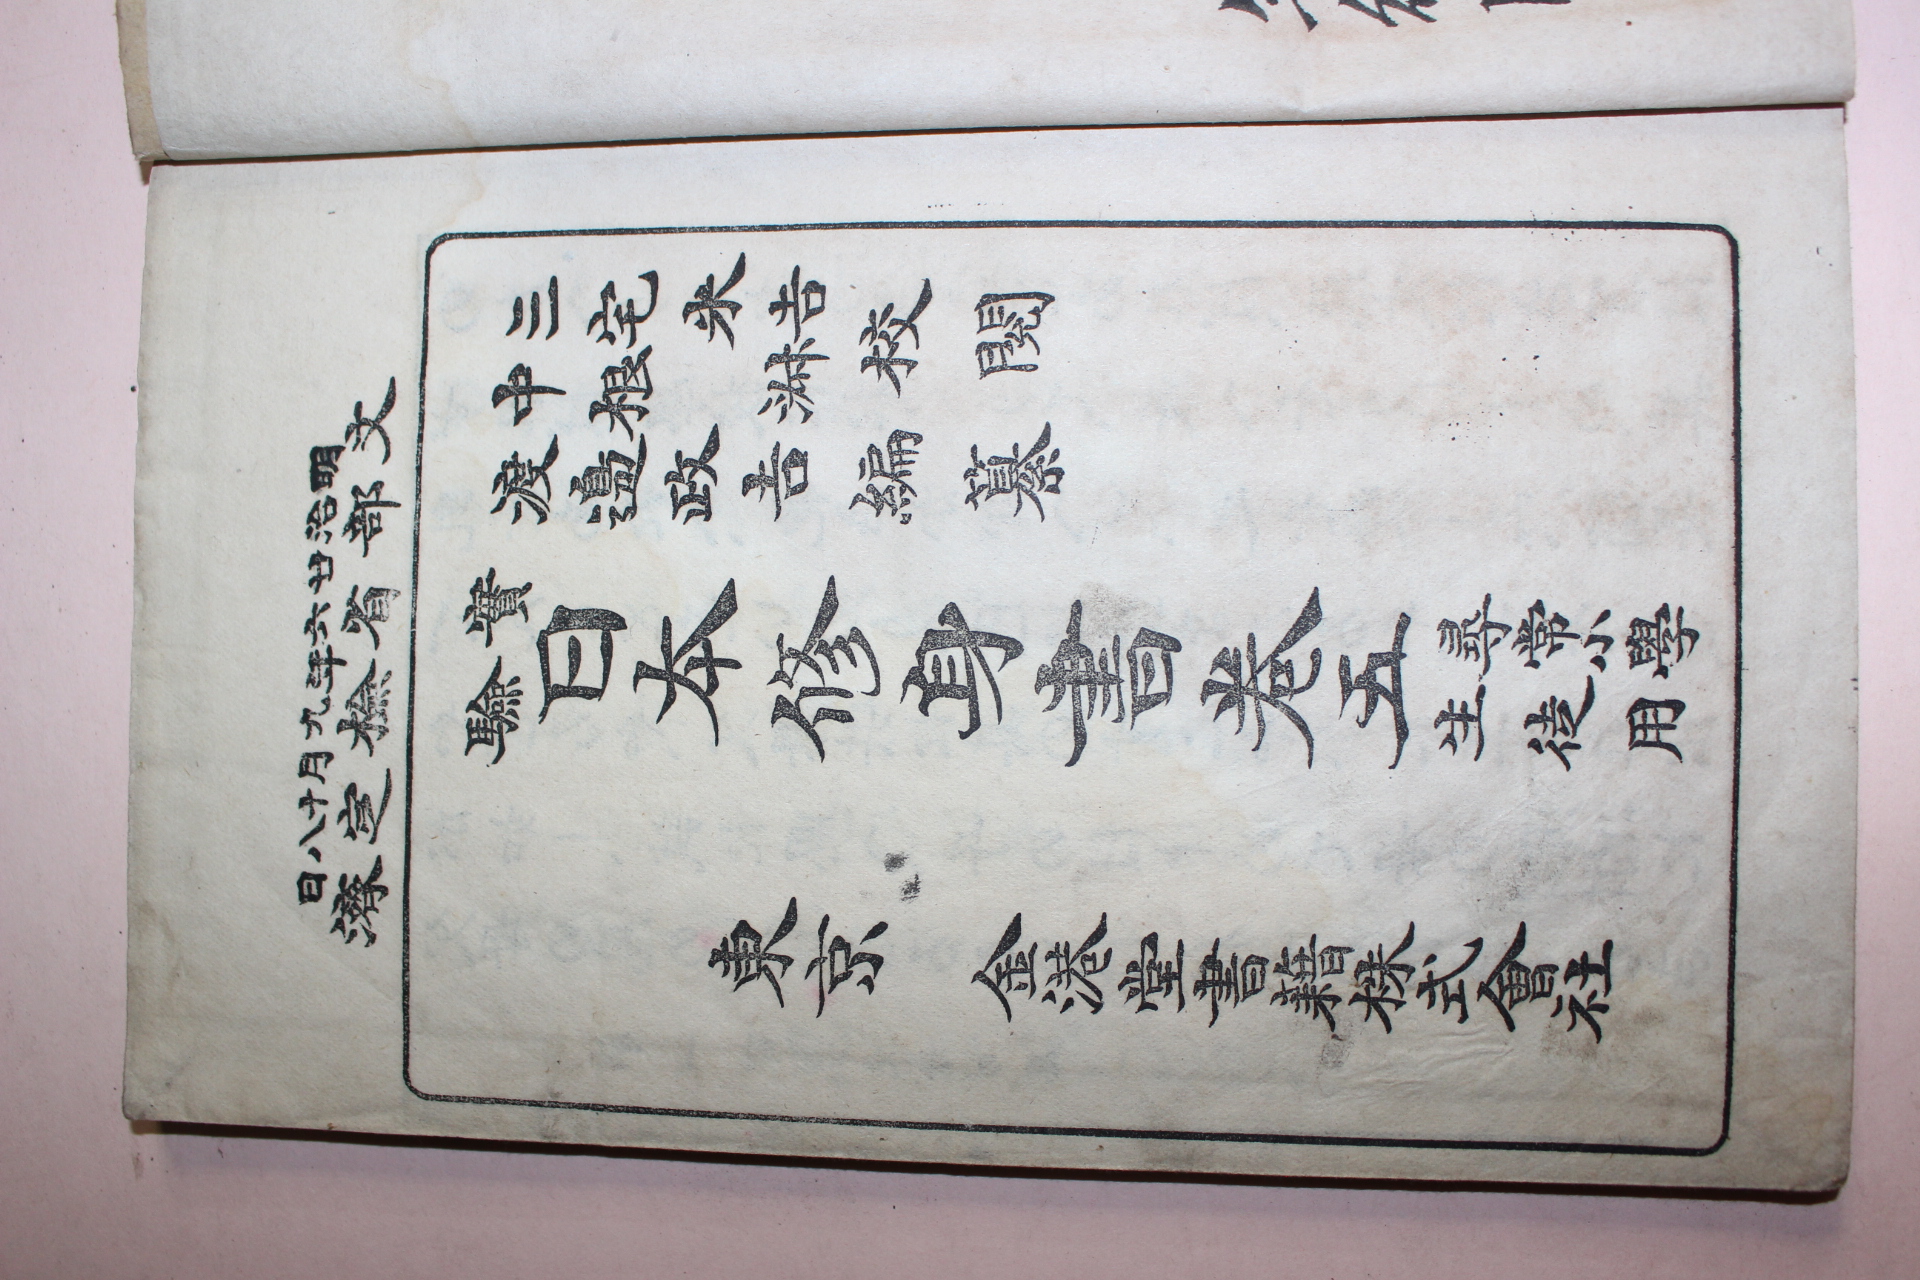 明治廿六年九月十八日
文部省檢定濟
三宅米吉
中根淑
校閲
渡邊政吉編纂
實驗
日本修身書卷五
尋常小學
生徒用
東京 金港堂書籍株式會社